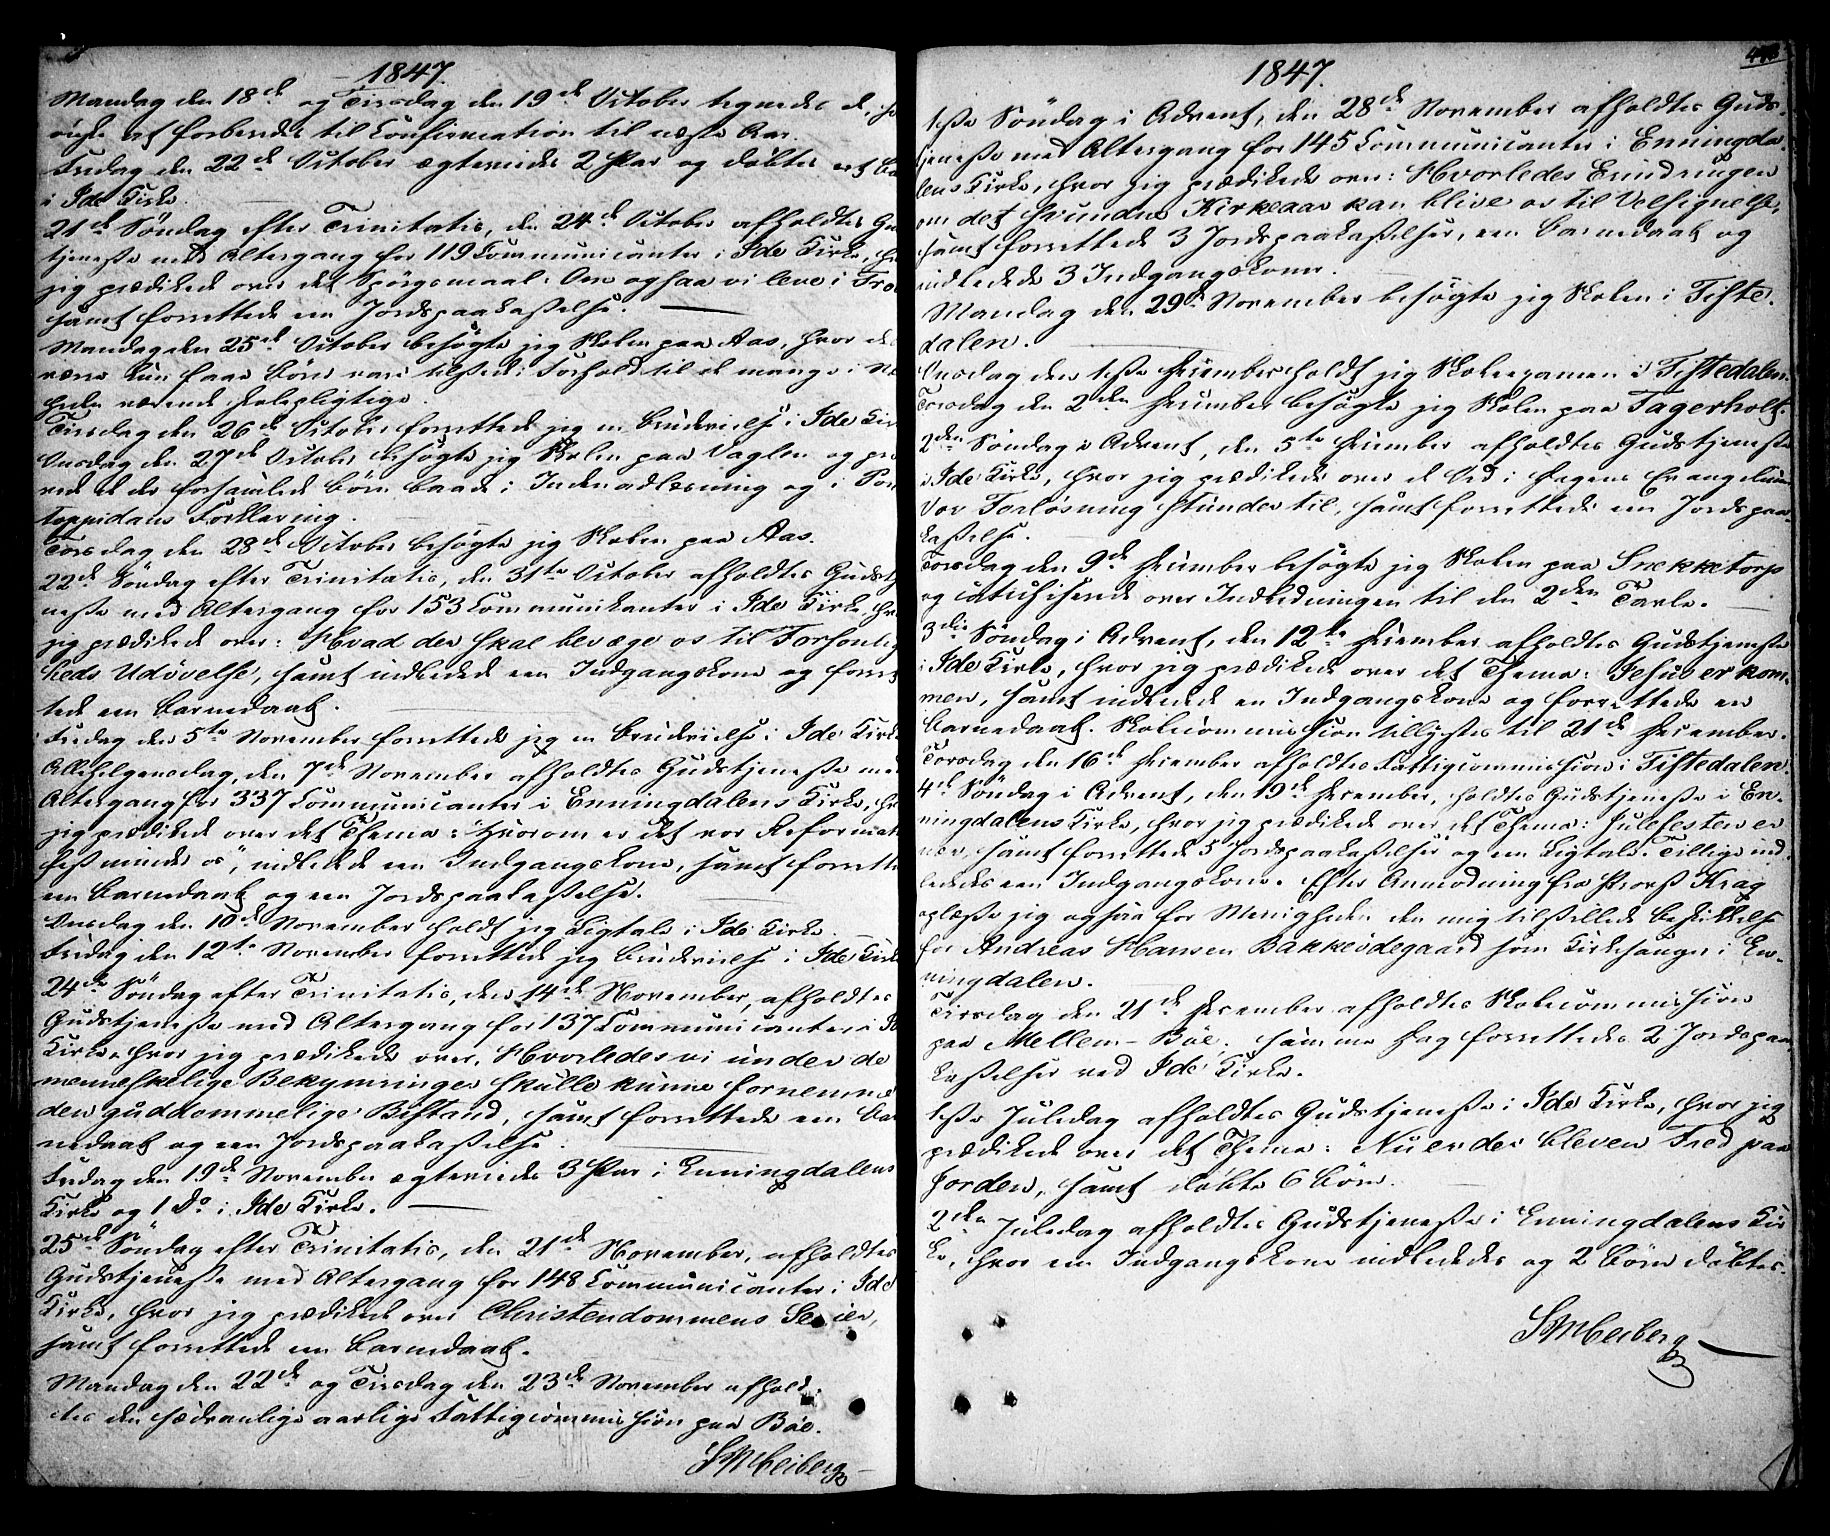 1847.
Mandag den 18de og Tirsdag den 19de October tegnedes de, so
önske at forberedes til Confirmation til næste Aar.
Fredag den 22de October ægteviedes 2 Par og döbtes et Ba
i Ide Kirke.
21de Söndag efter Trinitatis, den 24de October afholdtes Gu
tjeneste med Altergang for 119 Communicanter i Ide Kirke, h
jeg prædikede over det Spörgsmaal: Om ogsaa vi leve i Tro
samt forrettede een Jordspaakastelse.
Mandag den 25de October besögte jeg Skolen paa Aas, hvor de
værre kun faa Börn vare tilstede i Forhold til de mange i Næ
heden værende skolepligtige.
Tirsdag den 26de October forrettede jeg en Brudevielse i Ide Kir
Onsdag den 27de October besögte jeg Skolen paa Vaglen og prö
vede de der forsamlede Börn baade i Indenadlæsning og i Pon
toppidans Forklaring.
Torsdag den 28de October besögte jeg Skolen paa Aas.
22de Söndag efter Trinitatis, den 31te October afholdtes Gudstj
neste med Altergang for 153 Communikanter i Ide Kirke, hv
jeg prædikede over: Hvad der skal bevæge os til Forsonlig
heds Udövelse, samt indledede een Indgangskone og forret
tede een Barnedaab.
Fredag den 5te November forrettede jeg en Brudevielse i Ide Kirk
Allehelgensdag, den 7de November afholdtes Gudstjeneste med
Altergang for 337 Communicanter i Enningdalens Kirke, hv
jeg prædikede over det Thema: "Hvorom er det vor Reformati
fest minder os", indledede een Indgangskone, samt forrette
een Barnedaab og een Jordspaakastelse.
Onsdag den 10de November holdt jeg Ligtale i Ide Kirke.
Fredag den 12te November forrettede jeg Brudevielse i Ide Kirk
24de Söndag efter Trinitatis, den 14de November, afholdtes
Gudstjeneste med Altergang for 137 Communicanter i Id
Kirke, hvor jeg prædikede over, Hvorledes vi under de
menneskelige Bekymringer skulle kunne fornemme
den guddommelige Bistand, samt forrettede een Bar
nedaab og een Jordspaakastelse.
Fredag den 19de November ægteviedes 3 Par i Enningdalens
Kirke og 1 Do i Ide Kirke.
25de Söndag efter Trinitatis, den 21de November, afholdtes
Gudstjeneste med Altergang for 148 Communicanter i Ide
Kirke, hvor jeg prædikede over Christendommens Seier,
samt forrettede een Barnedaab.
Mandag den 22de og Tirsdag den 23de November afhold
tes den sædvanlige aarlige Fattigcommission paa Böe.
SMHeiberg
1847.
1ste Söndag i Advent, den 28de November afholdtes Guds-
tjeneste med Altergang for 145 Communicanter i Enningda-
lens Kirke, hvor jeg prædikede over: Hvorledes Erindringen
om det svundne Kirkeaar kan blive os til Velsignelse,
samt forrettede 3 Jordspaakastelser, een Barnedaab og
indledede 3 Indgangskoner.
Mandag den 29de November besögte jeg Skolen i Tiste-
dalen.
Onsdag den 1ste December holdt jeg Skoleexamen i Tistedalen.
Torsdag den 2den December besögte jeg Skolen paa Fagerholt.
2den Söndag i Advent, den 5te December afholdtes Gudstjeneste
i Ide Kirke, hvor jeg prædikede over de Ord i Dagens Evangelium
Vor Forlösning stunder til, samt forrettede een Jordspaa-
kastelse.
Torsdag den 9de December besögte jeg Skolen paa Snekketorp
og catechiserede over Indledningen til den 2den Tavle.
3die Söndag i Advent, den 12te December afholdtes Gudstjeneste
i Ide Kirke, hvor jeg prædikede over det Thema: Jesus er kom-
men, samt indledede en Indgangskone og forrettede en
Barnedaab. Skolecommission tillystes til 21de December.
Torsdag den 16de December afholdtes Fattigcommission i Tistedalen.
4de Söndag i Advent, den 19de December, holdtes Gudstjeneste i En-
ningdalens Kirke, hvor jeg prædikede over det Thema: Julefesten er
nær, samt forrettede 5 Jordspaakastelser og een Ligtale. Tillige ind-
lededes een Indgangskone. Efter Anmodning fra Provst Krag
oplæste jeg ogsaa for Menigheden den mig tilstillede Beskikkelse
for Andreas Hansen Bakkeödegaard som Kirkesanger i En-
ningdalen.
Tirsdag den 21de December afholdtes Skolecommission
paa Mellem-Böe. Samme Dag forrettedes 2 Jordspaa-
kastelser ved Ide Kirke.
1ste Juledag afholdtes Gudstjeneste i Ide Kirke, hvor jeg
prædikede over det Thema: Nu er der bleven Fred paa
Jorden, samt döbte 6 Börn.
2den Juledag afholdtes Gudstjeneste i Enningdalens Kir
ke, hvor een Indgangskone indlededes og 2 Börn döbtes.
SMHeiberg